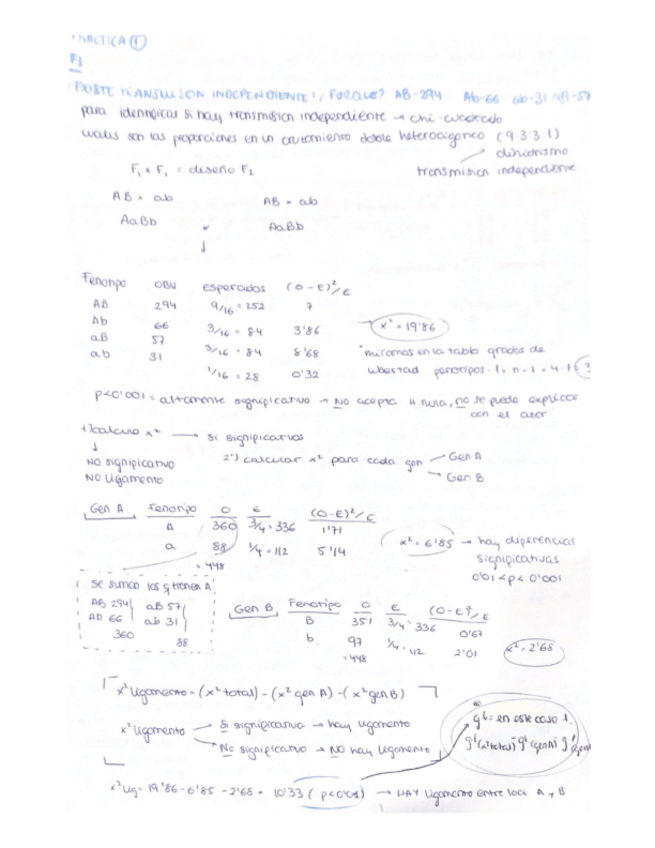 PRACTICA 1
F1
¿EXISTE TRANSMISION INDEPENDIENTE? ¿PORQUE? AB-294 Ab-66 ab-31 aB-57
para identificar si hay transmisión independiente → chi-cuadrado
cuales son las proporciones en un cruzamiento doble heterocigótico (9 3:3:1)
dihibridismo
transmisión independiente
F1 x F1 = diseño F2
AB x ab AB x ab
AaBb x AaBb
↓
Fenotipo OBV esperados (O-E)²/E
AB 294 9/16 = 252 7
Ab 66 3/16 = 84 3'86
aB 57 3/16 = 84 8'68
ab 31 1/16 = 28 0'32
→ x² = 19'86
*miramos en la tabla grados de
libertad fenotipos - 1, n - 1 = 4 - 1 = 3
p<0'001 = altamente significativo → NO acepta H. nula, no se puede explicar
con el azar
1) calculo x² → si significativas
↓
NO significativo
NO ligamento
2º) calcular x² para cada gen → Gen A
→ Gen B
Gen A Fenotipo O E (O-E)²/E
A 360 3/4 = 336 1'71
a 88 1/4 = 112 5'14
= 448
x² = 6'85 → hay diferencias
significativas
0'01 < p < 0'001
Se suman los q tienen A
AB 294 aB 57
Ab 66 ab 31
360 88
Gen B Fenotipo O E (O-E)²/E
B 351 3/4 = 336 0'67
b 97 1/4 = 112 2'01
= 448
x² = 2'68
x² ligamento = (x² total) - (x² gen A) - (x² gen B)
x² ligamento → Si significativa → hay ligamento
→ No significativo → NO hay ligamento
gl = en este caso 1.
gl (x² total) - gl (gen A) - gl (gen
x² lig = 19'86 - 6'85 - 2'68 = 10'33 (p<0'01) → HAY ligamento entre loci A y B